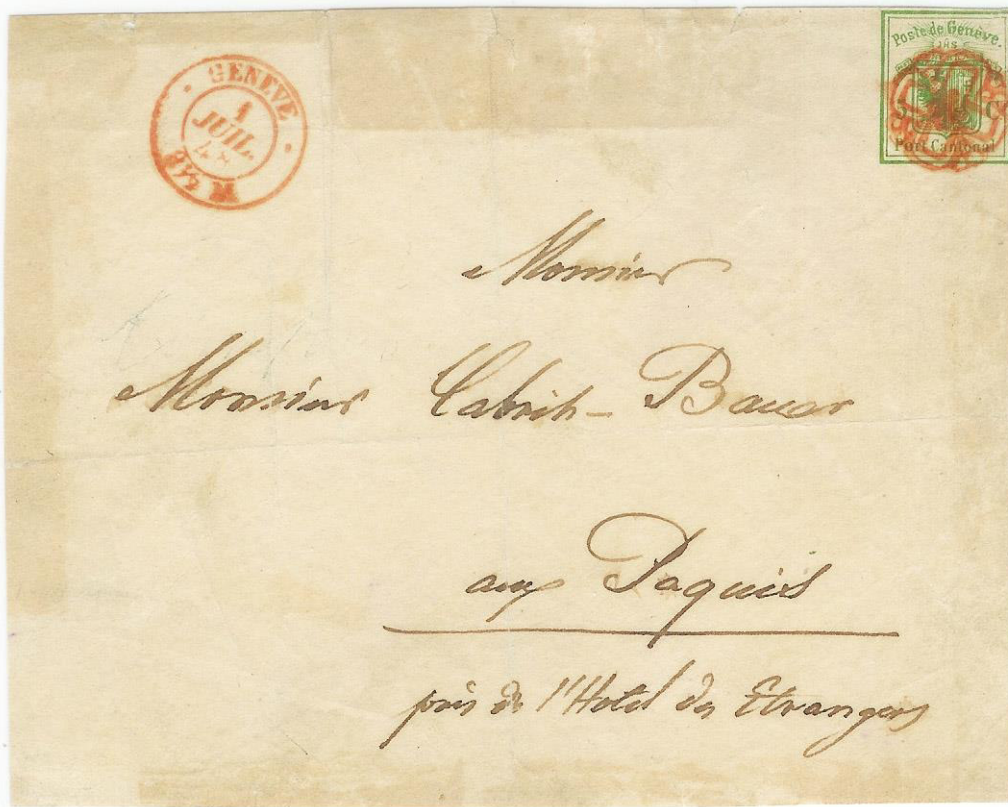 GENEVE
1
JUIL.
48
Poste de Genève
5 C
Port Cantonal
Monsieur
Monsieur Bauer
aux Paquis
près de l'Hotel des Etrangers